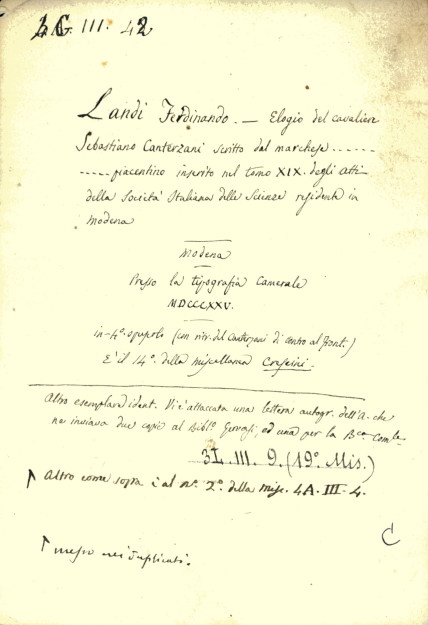 4G. III. 42
Landi Ferdinando. — Elogio del cavaliere
Sebastiano Canterzani scritto dal marchese ......
...... piacentino inserito nel tomo XIX. degli Atti
della Società Italiana delle Scienze residente in
Modena
Modena
Presso la tipografia Camerale
MDCCCXXV.
in-4º. (con ritr. del Canterzani di contro al front.)
È il 14º. della miscellanea Crescini.
Altro esemplare ident. Vi è attaccata una lettera autogr. dell'A. che
ne inviava due copie al Biblº. Gervasi, ed una per la Bca Comle.
3L. III. 9. (19º. Mis.)
Altro come sopra è al nº. 2º. della misc. 4A. III. 4.
C
messo nei duplicati.